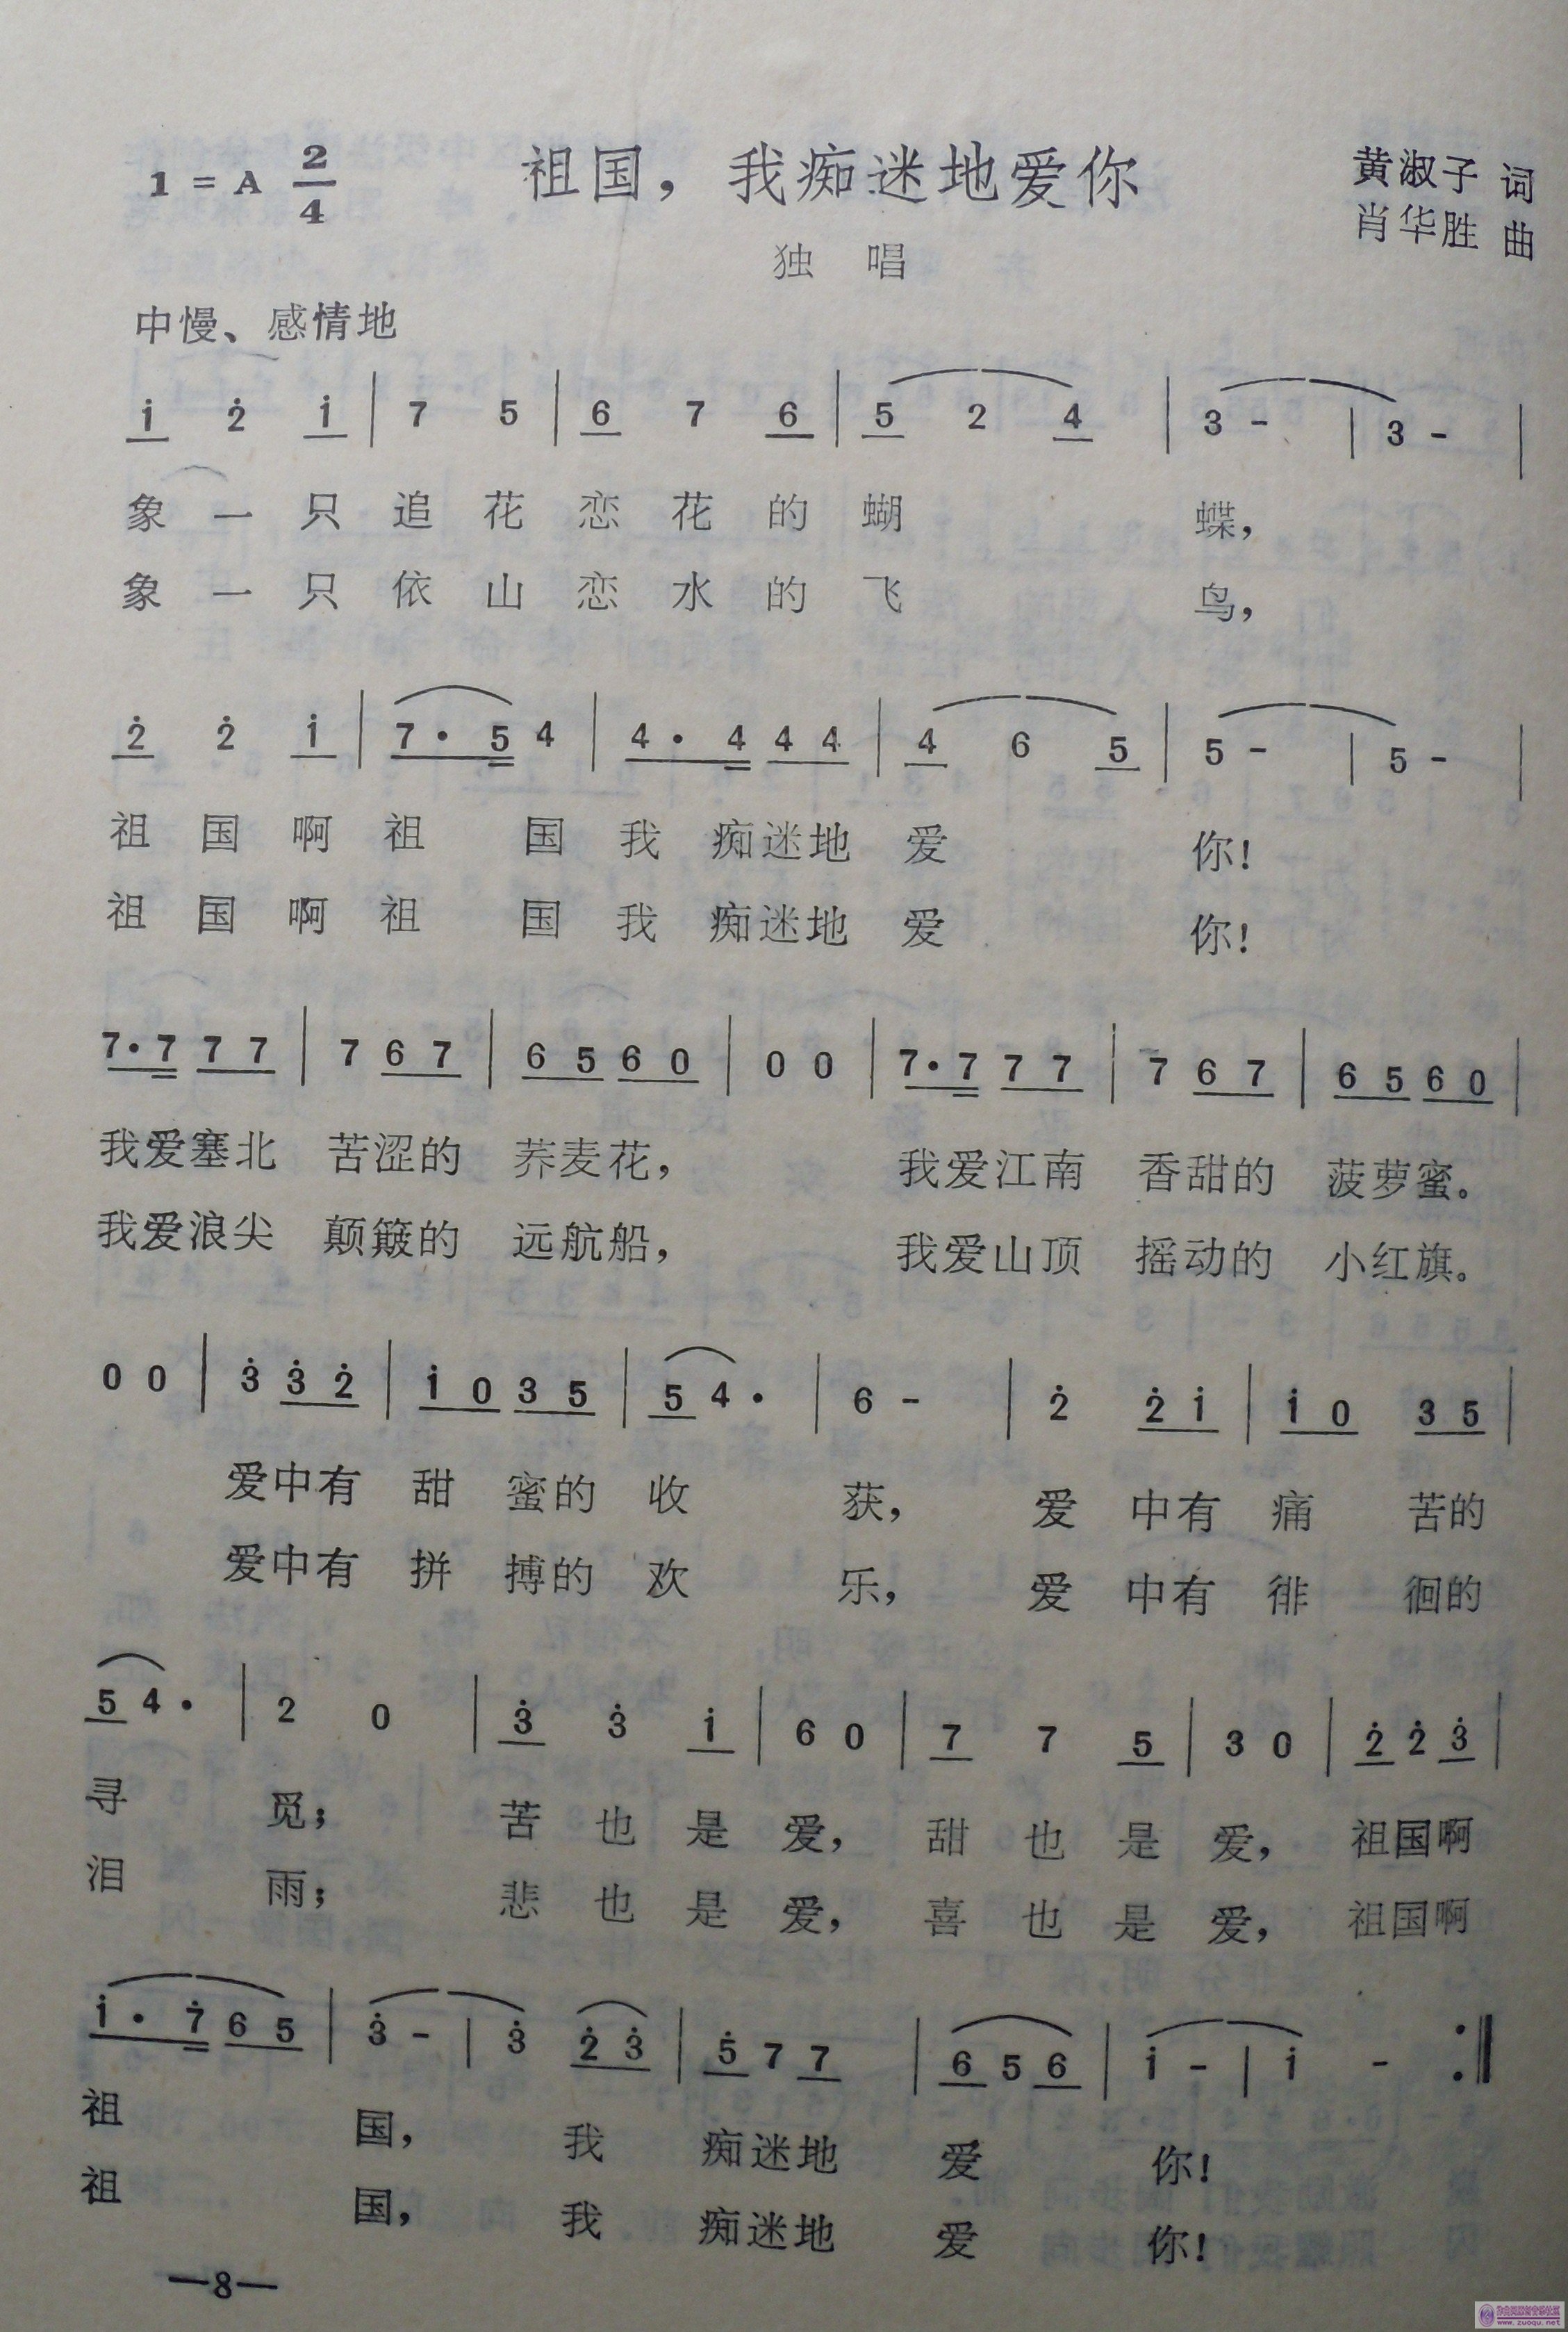 1 = A 2/4 祖国，我痴迷地爱你 黄淑子 词
肖华胜 曲
独 唱
中慢、感情地
i 2̇ i | 7 5 | 6 7 6 | 5 2 4 | 3 - | 3 - |
象一只追花恋花的蝴 蝶，
象一只依山恋水的飞 鸟，
2̇ 2̇ i | 7· 5 4 | 4· 4 4 4 | 4 6 5 | 5 - | 5 - |
祖国啊祖 国我 痴迷地 爱 你！
祖国啊祖 国我 痴迷地 爱 你！
7·7 7 7 | 7 6 7 | 6 5 6 0 | 0 0 | 7·7 7 7 | 7 6 7 | 6 5 6 0 |
我爱塞北 苦涩的 荞麦花， 我爱江南 香甜的 菠萝蜜。
我爱浪尖 颠簸的 远航船， 我爱山顶 摇动的 小红旗。
0 0 | 3̇ 3̇ 2̇ | i 0 3 5 | 5 4· | 6 - | 2̇ 2̇ i | i 0 3 5 |
爱中有 甜 蜜的 收 获， 爱 中有 痛 苦的
爱中有 拼 搏的 欢 乐， 爱 中有 徘 徊的
5 4· | 2 0 | 3̇ 3̇ i | 6 0 | 7 7 5 | 3 0 | 2̇ 2̇ 3̇ |
寻 觅； 苦也是 爱， 甜也是 爱， 祖国啊
泪 雨； 悲也是 爱， 喜也是 爱， 祖国啊
i· 7̇ 6 5 | 3̇ - | 3̇ 2̇ 3̇ | 5̇ 7 7 | 6 5 6 | i - | i - :‖
祖 国， 我 痴迷地 爱 你！
祖 国， 我 痴迷地 爱 你！
—8—
www.zuoqu.net